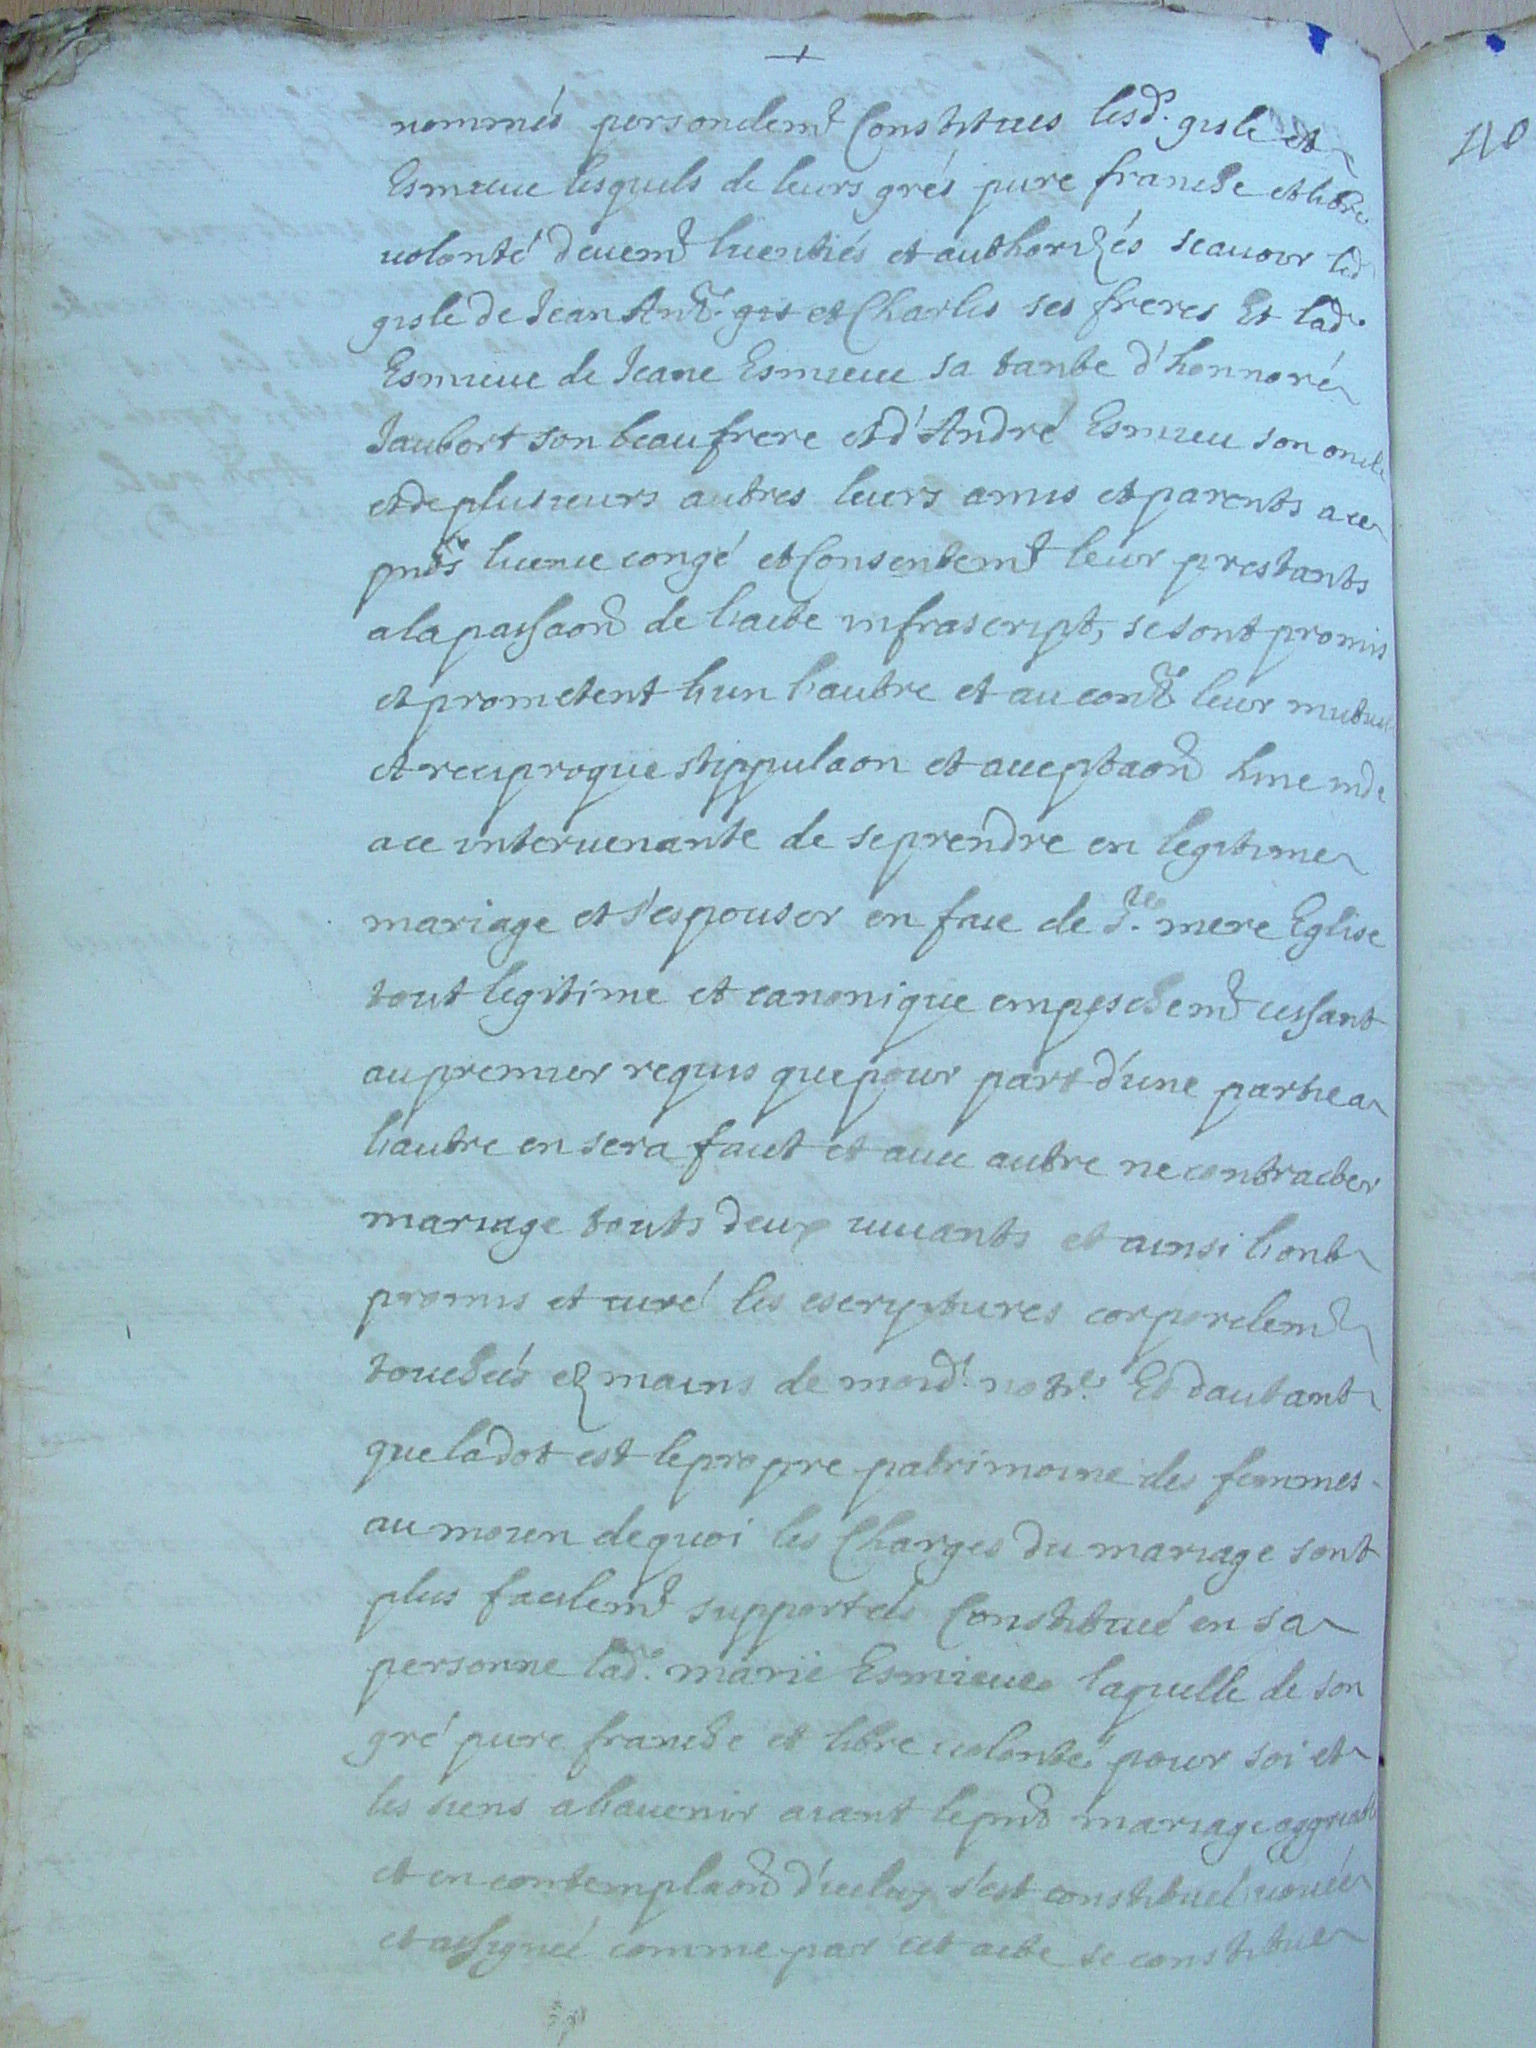 nommés personelemt Constitues lesd. gisle et
Esmieue lesquels de leurs grés pure franche et libre
uolonté deuemt licentiés et authorizés scauoir led
gisle de Jean Antt. gis et Charles ses freres Et lad.
Esmieue de Jeane Esmieue sa tante d'honnoré
Jaubert son beau frere et d'André Esmieu son oncle
et de plusieurs autres leurs amis et parents a ce
pnts licence congé et Consentemt leur prestants
a la passaon de l'acte infrascript, se sont promis
et prometent l'un l'autre et au contr. leur mutuel
et reciproque stippulaon et acceptaon hinc inde
a ce interuenante de se prendre en legitime
mariage et s'espouser en face de Ste. mere Eglise
tout legitime et canonique empeschemt cessant
au premier requis que pour part d'une partie a
l'autre en sera fait et auec autre ne contracter
mariage touts deux uiuants et ainsi l'ont
promis et iuré les escriptures corporelemt
touchées ez mains de moid. notre. Et dautant
que la dot est le propre patrimoine des femmes
au moien de quoi les Charges du mariage sont
plus facilemt supportés Constituée en sa
personne lad. marie Esmieue laquelle de son
gré pure franche et libre uolonté pour soi et
les siens a l'auenir aiant le pnt mariage aggreable
et en contemplaon d'icelui s'est constituée uouée
et assignée comme par cet acte se constitue
110